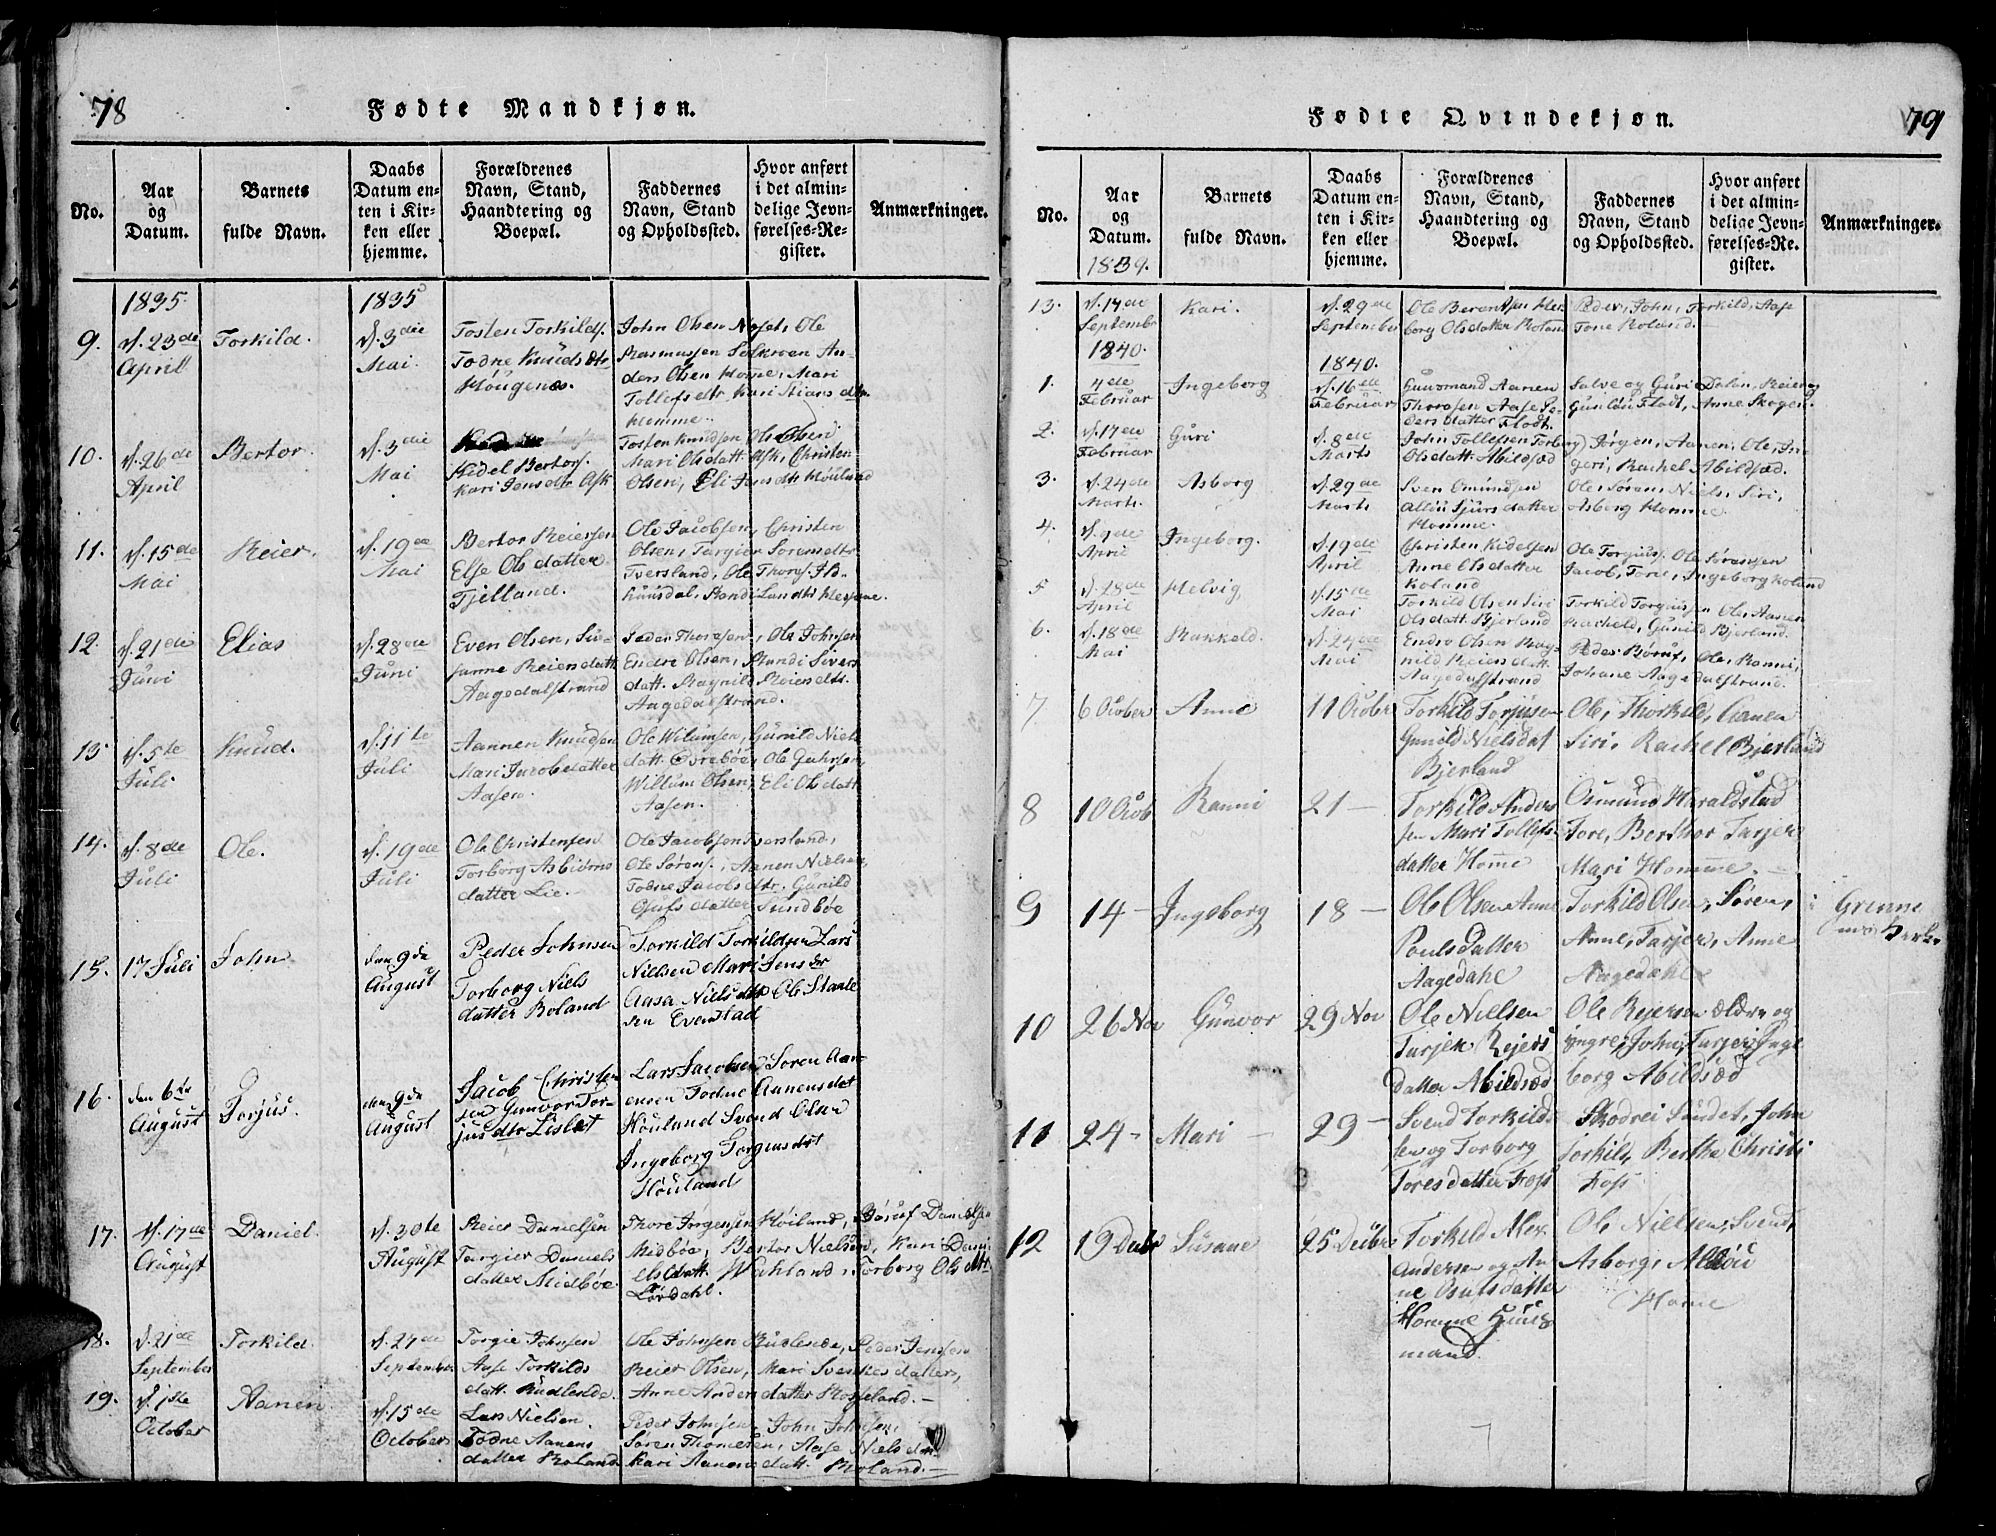 78
Fødte Mandkjøn.
No.
Aar
og
Datum.
Barnets
fulde Navn.
Daabs
Datum en-
ten i Kir-
ken eller
hjemme.
Forældrenes
Navn, Stand,
Haandtering og
Boepæl.
Faddernes
Navn, Stand
og Opholdssted.
Hvor anført
i det almin-
delige Jevn-
førelses-Re-
gister.
Anmærkninger.
1835.
1835
9.
d. 23de
April
Torkild.
d. 3die
Mai.
Tosten Torkilds.
Todne Knudsdtr
Hougenes.
John Olsen Ole
Rasmussen An-
ders Olsen Homme, Mari
Tollefsdtr Kari Stians dtr.
Homme.
10.
d. 26de
April
Bertor.
d. 3die
Mai
Kidel Bertors.
Kari Jensdtr Ask
Tosten Knudsen Ole Olsen
Mari Olsdatt. Ask, Christen
Olsen, Eli Jensdtr Houland
11.
d. 15de
Mai
Reier.
d. 19de
Mai
Bertor Reiersen
Else Olsdatter
Tjelland.
Ole Jacobsen, Christen
Olsen, Targier Sørensdtr
Tversland, Ole Thors.
12.
d. 21de
Juni
Elias
d. 28de
Juni
Even Olsen, Su-
sanne Reiersdatt
Aagedalstrand
Peder Thorsen, Ole Johnsen
Endre Olsen, Randi Sivers
datt. Ragnild Reiersdtr.
Aagedalstrand.
13
d. 5te
Juli
Knud.
d. 11te
Juli
Aannen Knudsen
Mari Jacobsdatter
Aasen.
Ole Wilumsen, Gunild Niels
datt. Øvrebøe, Ole
Willum Olsen, Eli Olsdatt
Aasen.
14.
d. 8de
Juli
Ole.
d. 19de
Juli
Ole Christensen
Torborg Asbiørns
datter Lie.
Ole Jacobsen Tversland,
Ole Sørens., Aanen Nielsen,
Todne Jacobsdtr. Gunild
datter Sundbøe
15.
17 Juli
John
den 9de
August
Peder Johnsen
Torborg Niels
datter Roland
Torkild Torkildsen Lars
Nielsen Mari Jensdtr
Aasa Nielsdtr Ole Staale
sen Evenstad
16.
den 6te
August
Torjus.
den 9de
August
Jacob Christen
sen Gunvor Tor-
jusdtr Lislet
Lars Jacobsen Søren Aan-
ensen Todne Aanensdat
Houland Svend Olsen
Ingeborg Torgiusdat
Houland
17.
d. 17de
August
Daniel.
d. 30te
August
Reier Danielsen
Targier Daniels
datter Midbøe.
Thore Jørgensen Høiland, Børuf Danielsen
Midbøe, Bertor Nielsen, Kari Dani
elsdatt. Wehland, Torborg Olsdtr
Lørdahl.
18.
d. 21de
September
Torkild.
d. 27de
September
Torgie Johnsen
Aase Torkilds
datt. Rudlende.
Ole Johnsen Rudlende, Peder Jensen
Reier Olsen, Mari Svenkesdatter,
Anne Andersdatter Rosseland.
19.
d. 1ste
October
Aanen.
d. 15de
October
Lars Nielsen.
Todne Aanens
datter Roland
Peder Johnsen, John Johnsen,
Søren Thomesen, Aase Nielsdatt
Kari Aanensdatt. Roland.
79
Fødte Qvindekjøn.
No.
Aar
og
Datum.
1839.
Barnets
fulde Navn.
Daabs
Datum en-
ten i Kir-
ken eller
hjemme.
Forældrenes
Navn, Stand,
Haandtering og
Boepæl.
Faddernes
Navn, Stand
og Opholdssted.
Hvor anført
i det almin-
delige Jevn-
førelses-Re-
gister.
Anmærkninger.
13.
d. 17de
Septembr
Kari.
d. 29de
September
Ole Berentsen
borg Olsdatter Roland
Peder, John, Torkild, Aase
Tone Roland.
1840.
1840.
1.
4de
Februar
Ingeborg
d. 16de
Februar
Huusmand Aanen
Thorsen Aase Pe-
dersdatter Flodt.
Salve og Guri Dalen, Reier og
Gunlou Flodt, Anne Skogen.
2.
d. 17de
Februar
Guri
d. 8de
Marts
John Tollefsen Torborg
Olsdatt. Abildsød
Jørgen, Aanen, Ole, In-
geri, Rachel Abildsød.
3.
d. 24de
Marts.
Asborg
d. 29de
Marts
Sven Omundsen
Allou Sjursdatter
Homme.
Ole, Søren, Niels, Siri,
Asberg Homme
4.
d. 9de
April
Ingeborg.
d. 19de
April
Christen Kidelsen
Anne Olsdatter
Roland
Ole Torgiuss. Ole Sørensen
Jacob, Tone, Ingeborg Roland
5
d. 28de
April
Helvig
d. 15de
Mai
Torkild Olsen Siri
Olsdatt. Bjerland
Torkild Torgiussen Ole, Aanen
Racheld, Gunild Bjerland.
6.
d. 18de
Mai
Rakkeld.
d. 24de
Mai
Endre Olsen Rag-
nild Reiersdatt
Aagedalstrand
Peder Børuf, Ole, Ranni,
Johane Aagedalstrand.
7
6 Octber
Anne
11 Octbr
Torkild Torjusen
Gunild Nielsdat
Bjerland
Ole, Thorkild, Aanen
Siri, Rachel Bjerland
8
10 Octb
Ranni
21 —
Torkild Anders
sen Mari Tollefs-
datter Homme
Osmund Haraldstad
Tore, Berthor Tarjer
Mari Homme.
9
14 —
Ingeborg
18 —
Ole Olsen Anne
Poulsdatter
Aagedahl
Torkild Olsen, Søren,
Anne, Tarjer, Anne
Aagedahl
i Grenne
Kirke
10
26 Nov
Gunvor
29 Nov
Ole Nielsen
Tarjer Rejers
datter Abildsød
Ole Rejersen ældre og
yngre, John, Tarjer, Inge
borg Abildsød
11
24 —
Mari —
29 —
Svend Torkild-
sen og Torborg
Toresdatter Foss
Skodrei Sundet, John
Torkild, Berthe Christi
Foss
12
19 Decbr
Susane
25 Decbr
Torkild Alex
Andersen og An
ne Poulsdatter
Homme Huus
mand.
Ole Nielsen, Svend,
Asborg, Allou
Home